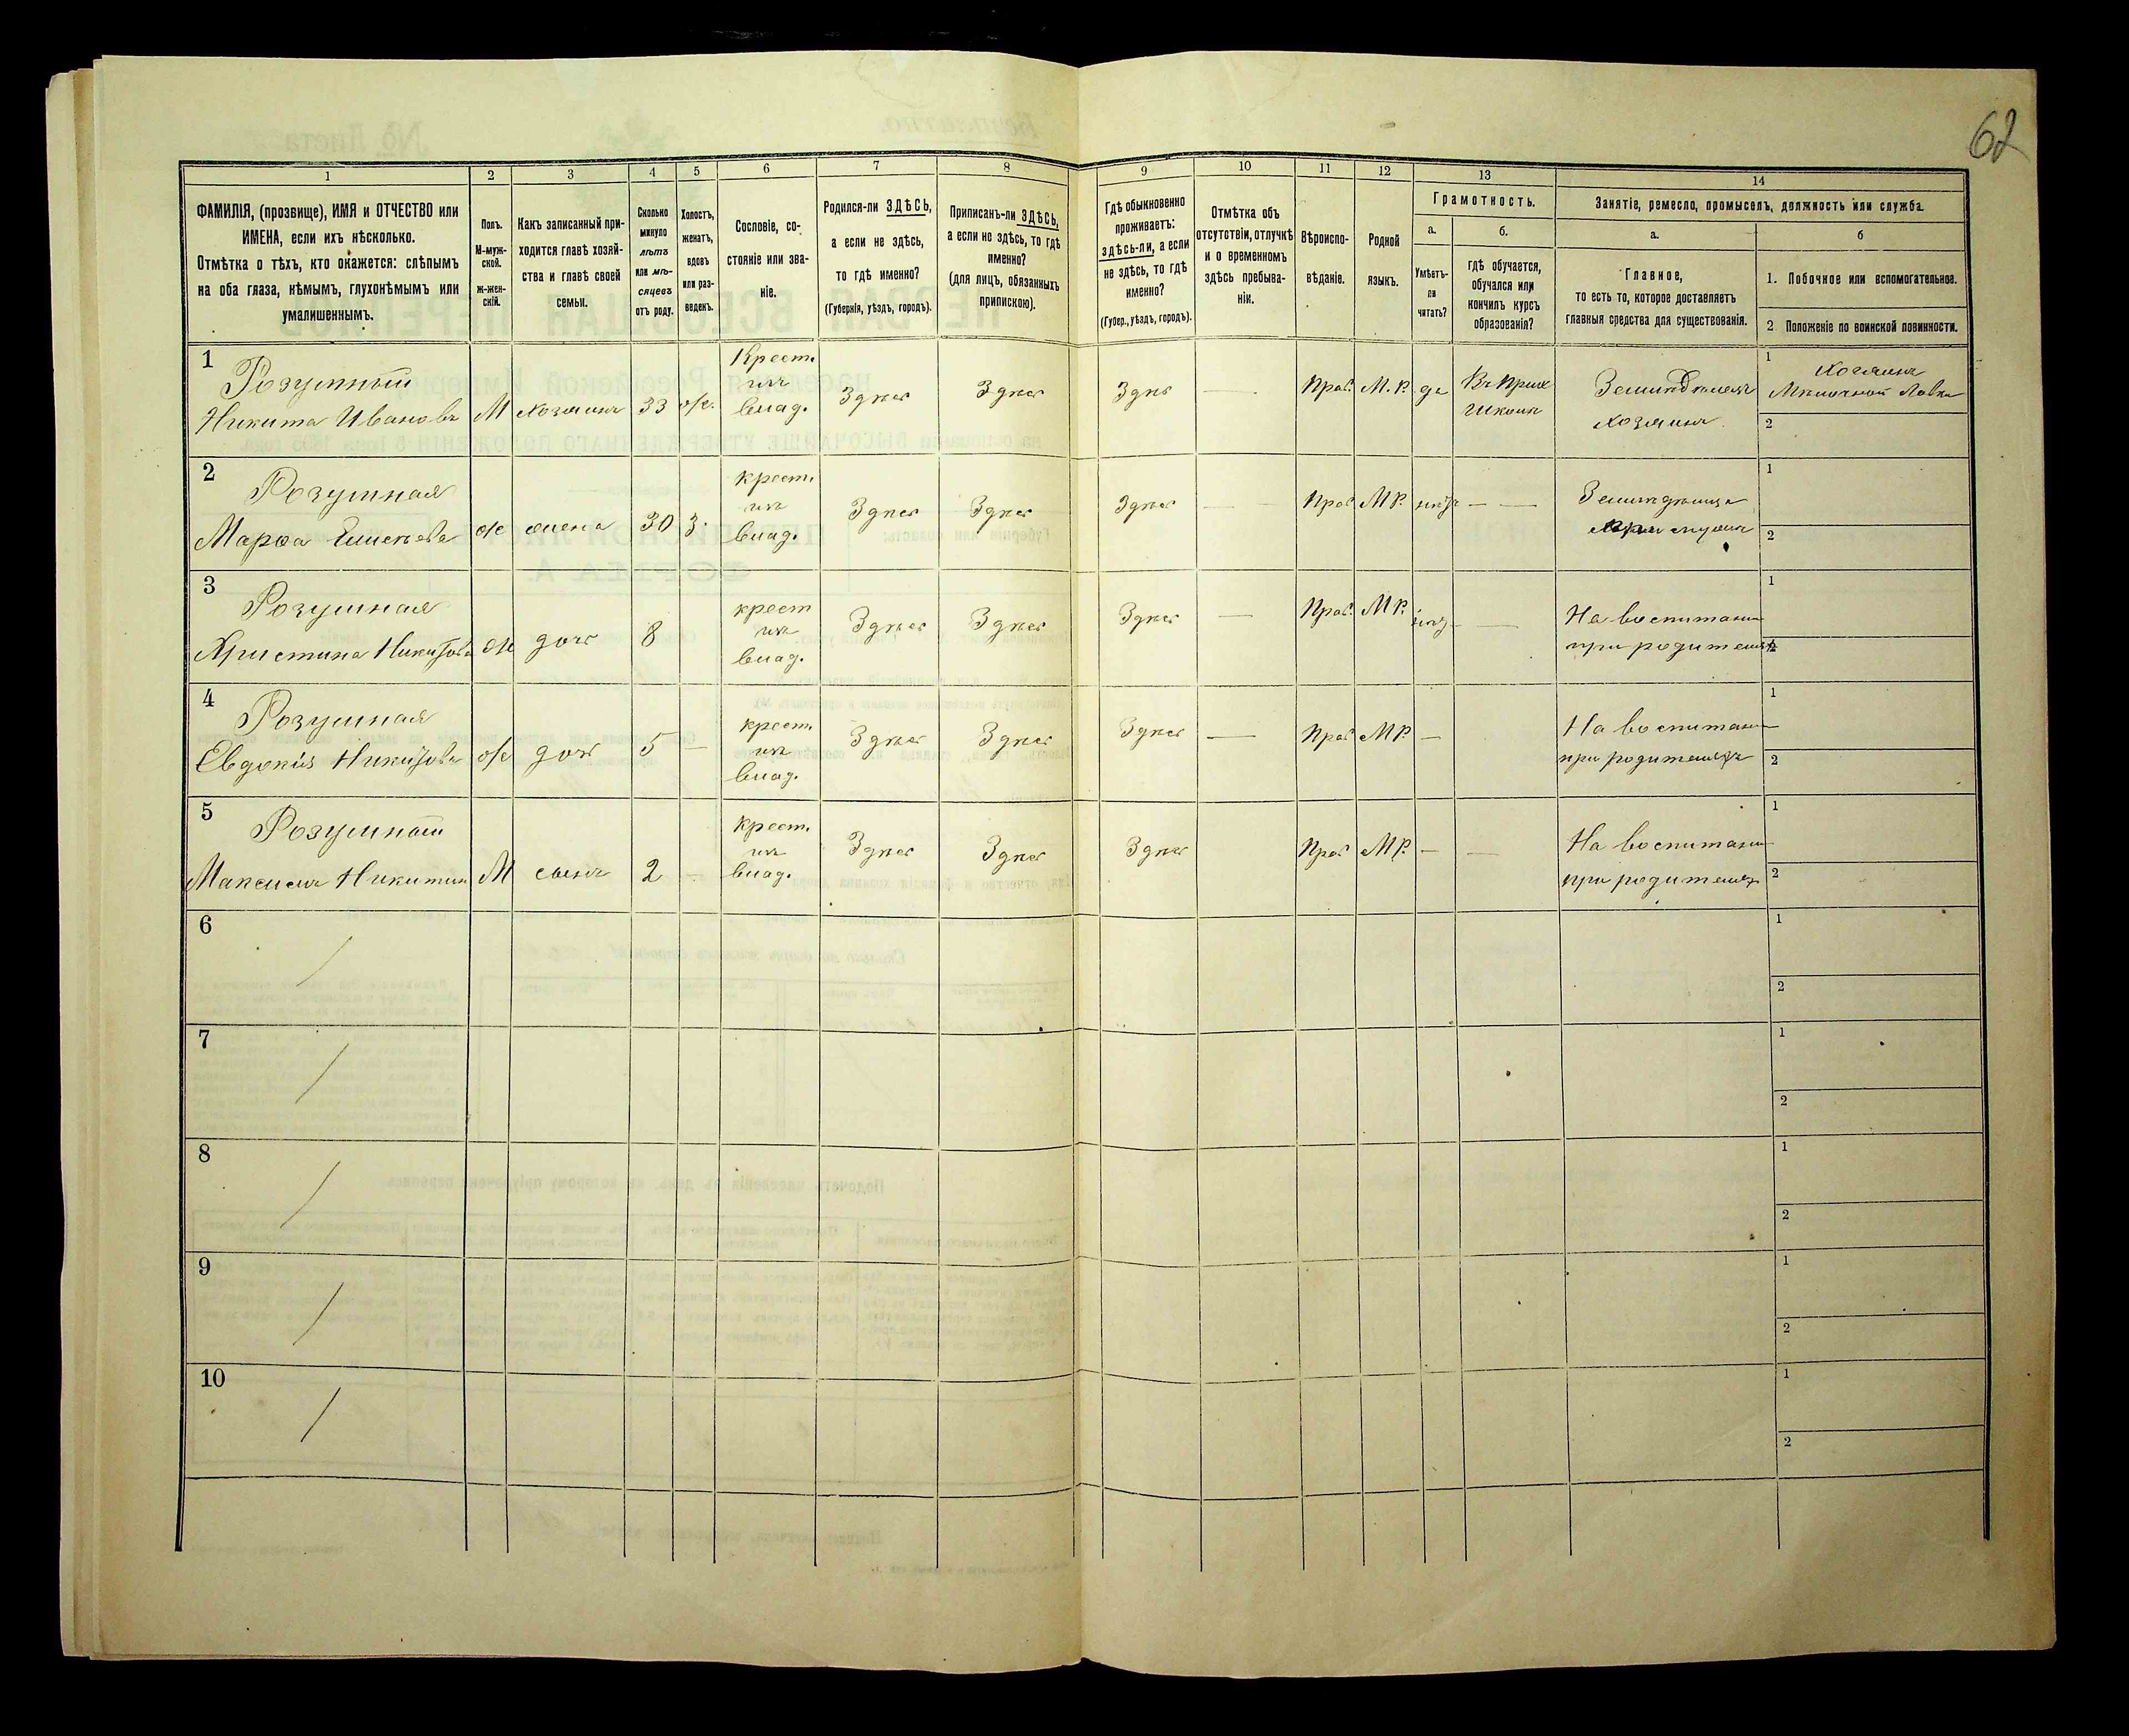 62
1 2 3 4 5 6 7 8 9 10 11 12 13 14
ФАМИЛІЯ, (прозвище), ИМЯ и ОТЧЕСТВО или
ИМЕНА, если ихъ нѣсколько.
Отмѣтка о тѣхъ, кто окажется: слѣпымъ
на оба глаза, нѣмымъ, глухонѣмымъ или
умалишеннымъ.
Полъ.
М-муж-
ской.
Ж-жен-
скій.
Какъ записанный при-
ходится главѣ хозяй-
ства и главѣ своей
семьи.
Сколько
минуло
лѣтъ
или мѣ-
сяцевъ
отъ роду.
Холостъ,
женатъ,
вдовъ
или раз-
веденъ.
Сословіе, со-
стояніе или зва-
ніе.
Родился-ли ЗДѢСЬ,
а если не здѣсь,
то гдѣ именно?
(Губернія, уѣздъ, городъ).
Приписанъ-ли ЗДѢСЬ,
а если не здѣсь, то гдѣ
именно?
(для лицъ, обязанныхъ
припискою).
Гдѣ обыкновенно
проживаетъ:
здѣсь-ли, а если
не здѣсь, то гдѣ
именно?
(Губер., уѣздъ, городъ).
Отмѣтка объ
отсутствіи, отлучкѣ
и о временномъ
здѣсь пребыва-
ніи.
Вѣроиспо-
вѣданіе.
Родной
языкъ.
Грамотность.
а.
Умѣетъ-
ли
читать?
б.
гдѣ обучается,
обучался или
кончилъ курсъ
образованія?
Занятіе, ремесло, промыселъ, должность или служба.
а.
Главное,
то есть то, которое доставляетъ
главныя средства для существованія.
б
1. Побочное или вспомогательное.
2 Положеніе по воинской повинности.
1
Розумный
Никита Ивановъ
М
хозяинъ
33
ж.
Крест.
изъ
влад.
Здѣсь
Здѣсь
Здѣсь
—
Прав.
М. Р.
да
Въ Прих
школѣ
Земледѣлецъ
хозяинъ
1
Хозяинъ
Мелочной Лавки
2
2
Розумная
Марѳа
ж
жена
30
З.
крест.
изъ
влад.
Здѣсь
Здѣсь
Здѣсь
—
Прав
М Р.
нѣтъ
— —
при мужѣ
1
2
3
Розумная
Христина Никитова
ж
дочь
8
крест
изъ
влад.
Здѣсь
Здѣсь
Здѣсь
—
Прав.
М Р.
—
На воспитани
при родителяхъ
1
2
4
Розумная
Евдокія Никитова
ж
дочь
5
—
крест.
изъ
влад.
Здѣсь
Здѣсь
Здѣсь
—
Прав
М Р.
—
На воспитани
при родителяхъ
1
2
5
Розумный
Максимъ Никитинъ
М
сынъ
2
—
крест.
изъ
влад.
Здѣсь
Здѣсь
Здѣсь
Прав
М Р.
—
—
На воспитани
при родителяхъ
1
2
6
1
2
7
1
2
8
1
2
9
1
2
10
1
2